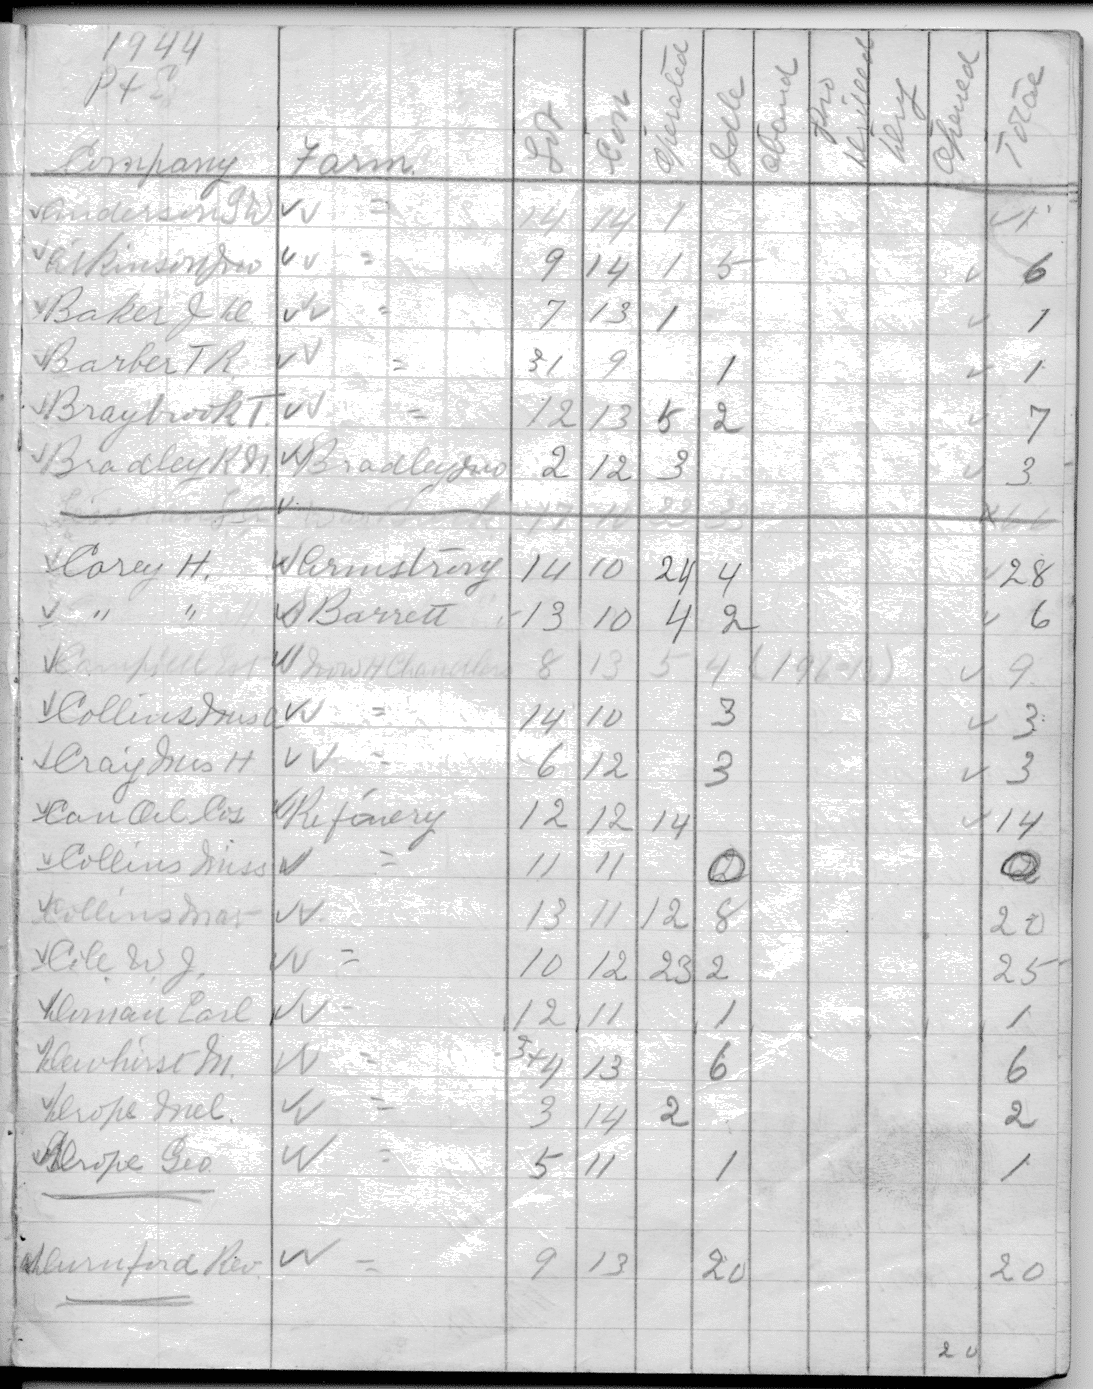 1944
P+E
Company Farm. Lot Con Operated Idle Aband Pro Drilled Dry Opened Total
Anderson J W = 14 14 1 1
Atkinson Jno = 9 14 1 5 6
Baker J = 7 13 1 1
Barber T R. = 31 9 1 1
Braybrook T. = 12 13 5 2 7
Bradley R M Bradley Jno 2 12 3 3
17
Corey H. Armstrong 14 10 24 4 28
" " Barrett 13 10 4 2 6
Campbell H Chandler 8 13 5 4 9
Collins Mrs = 14 10 3 3
Craig Mrs H = 6 12 3 3
Can Oil Cos Refinery 12 12 14 14
Collins Miss = 11 11 2 2
Collins 13 11 12 8 20
Cole W. J. = 10 12 23 2 25
Earl - 12 11 1 1
Dewhirst M. = 3+4 13 6 6
Drope Mel. = 3 14 2 2
Drope Geo = 5 11 1 1
Durnford Rev. = 9 13 20 20
20